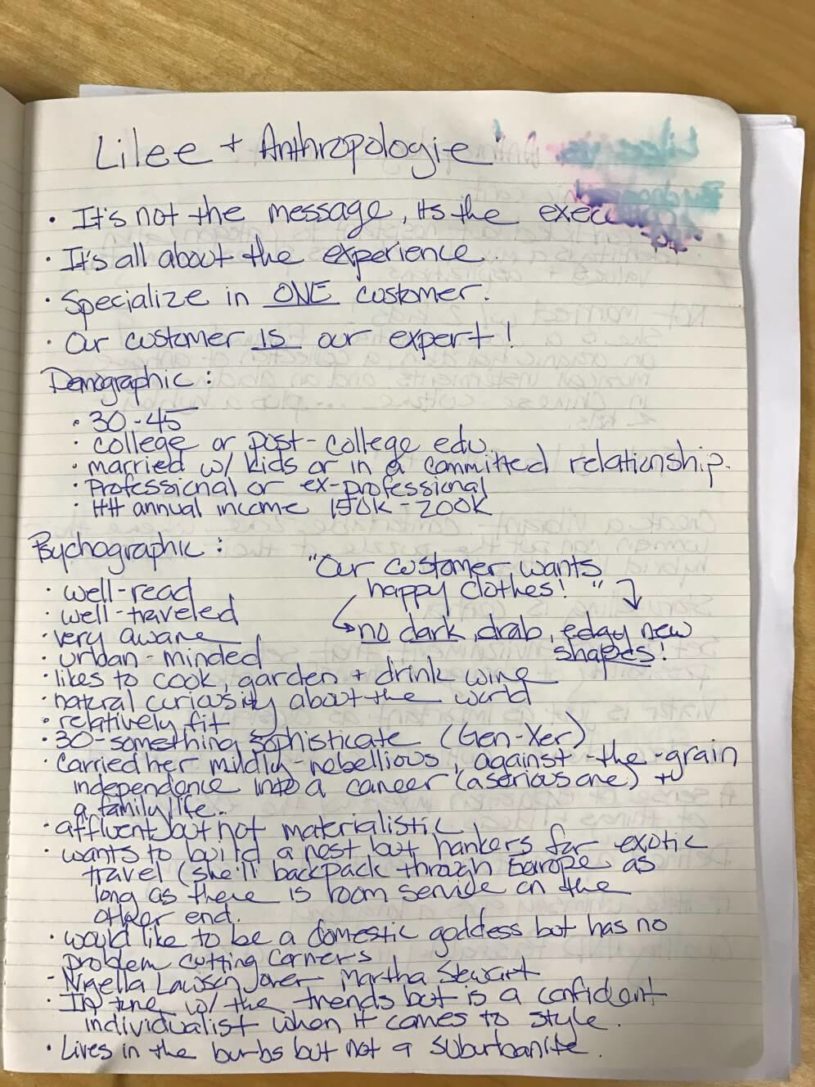 Lilee + Anthropologie
• It's not the message, its the execu
• It's all about the experience.
• Specialize in ONE customer.
• Our customer IS our expert!
Demographic:
• 30-45
• college or post-college edu.
• married w/ kids or in a committed relationship.
• Professional or ex-professional
• HH annual income 150K-200K
Pyschographic:
"Our customer wants
happy clothes!"
no dark, drab, edgy new
shapes!
• well-read
• well-traveled
• very aware
• urban-minded
• likes to cook, garden + drink wine
• natural curiosity about the world
• relatively fit
• 30-something sophisticate (Gen-Xer)
• carried her mildly-rebellious, against-the-grain
independence into a career (a serious one) +
a family life.
• affluent but not materialistic
• wants to build a nest but hankers for exotic
travel (she'll backpack through Europe as
long as there is room service on the
other end.
• would like to be a domestic goddess but has no
problem cutting corners
- Nigella Lawson over Martha Stewart
• In tune w/ the trends but is a confident
individualist when it comes to style.
• Lives in the burbs but not a suburbanite.